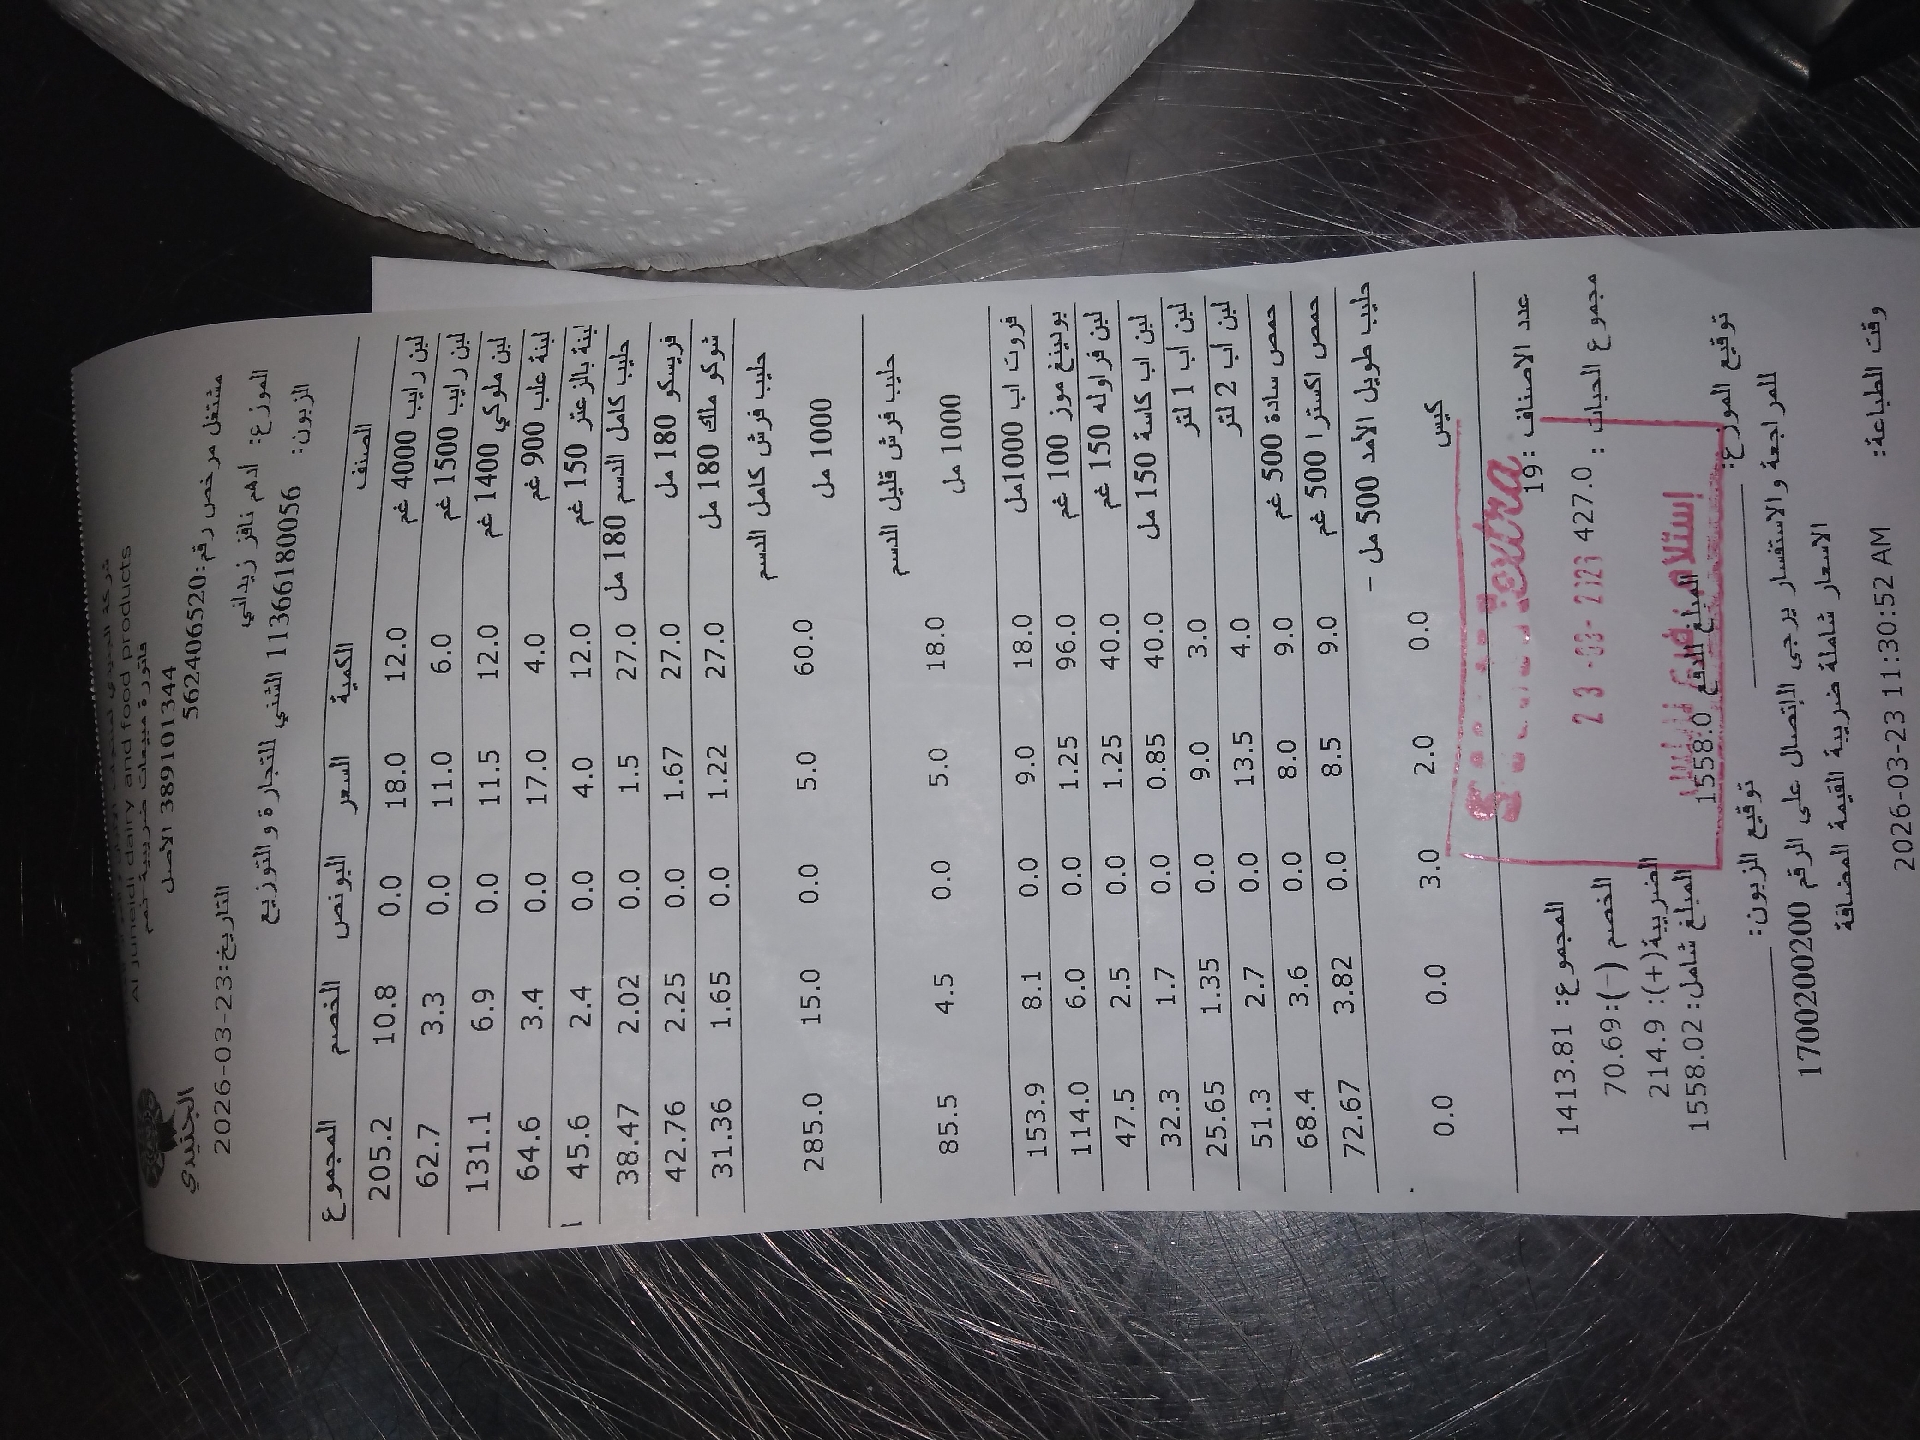 شركة الجنيدي لمنتجات الألبان والمواد
Al Juneidi dairy and food products
فاتورة مبيعات ضريبية-خصم
389101344 الاصل
الجنيدي
مشتغل مرخص رقم:562406520
التاريخ:23-03-2026
الموزع: ادهم نافز زيداني
الزبون: 11366180056 الشني للتجارة و التوزيع
الصنف الكمية السعر البونص الخصم المجموع
لبن رايب 4000 غم 12.0 18.0 0.0 10.8 205.2
لبن رايب 1500 غم 6.0 11.0 0.0 3.3 62.7
لبن ملوكي 1400 غم 12.0 11.5 0.0 6.9 131.1
لبنة علب 900 غم 4.0 17.0 0.0 3.4 64.6
لبنة بالزعتر 150 غم 12.0 4.0 0.0 2.4 45.6
حليب كامل الدسم 180 مل 27.0 1.5 0.0 2.02 38.47
فريسكو 180 مل 27.0 1.67 0.0 2.25 42.76
شوكو ملك 180 مل 27.0 1.22 0.0 1.65 31.36
حليب فرش كامل الدسم
1000 مل 60.0 5.0 0.0 15.0 285.0
حليب فرش قليل الدسم
1000 مل 18.0 5.0 0.0 4.5 85.5
فروت اب 1000مل 18.0 9.0 0.0 8.1 153.9
بودينغ موز 100 غم 96.0 1.25 0.0 6.0 114.0
لبن فراوله 150 غم 40.0 1.25 0.0 2.5 47.5
لبن اب كاسة 150 مل 40.0 0.85 0.0 1.7 32.3
لبن اب 1 لتر 3.0 9.0 0.0 1.35 25.65
لبن اب 2 لتر 4.0 13.5 0.0 2.7 51.3
حمص سادة 500 غم 9.0 8.0 0.0 3.6 68.4
حمص اكسترا 500 غم 9.0 8.5 0.0 3.82 72.67
حليب طويل الأمد 500 مل -
كيس 0.0 2.0 3.0 0.0 0.0
extra
عدد الاصناف :19
المجموع: 1413.81
مجموع الحبات : 427.0
23 -03- 2023
الخصم (-):70.69
الضريبة(+): 214.9
إستلام فرع نابلس
المبلغ شامل: 1558.02
المبلغ الدفع 1558.0
توقيع الموزع:
توقيع الزبون:
للمراجعة والاستفسار يرجى الإتصال على الرقم 1700200200
الاسعار شاملة ضريبة القيمة المضافة
وقت الطباعة: 2026-03-23 11:30:52 AM